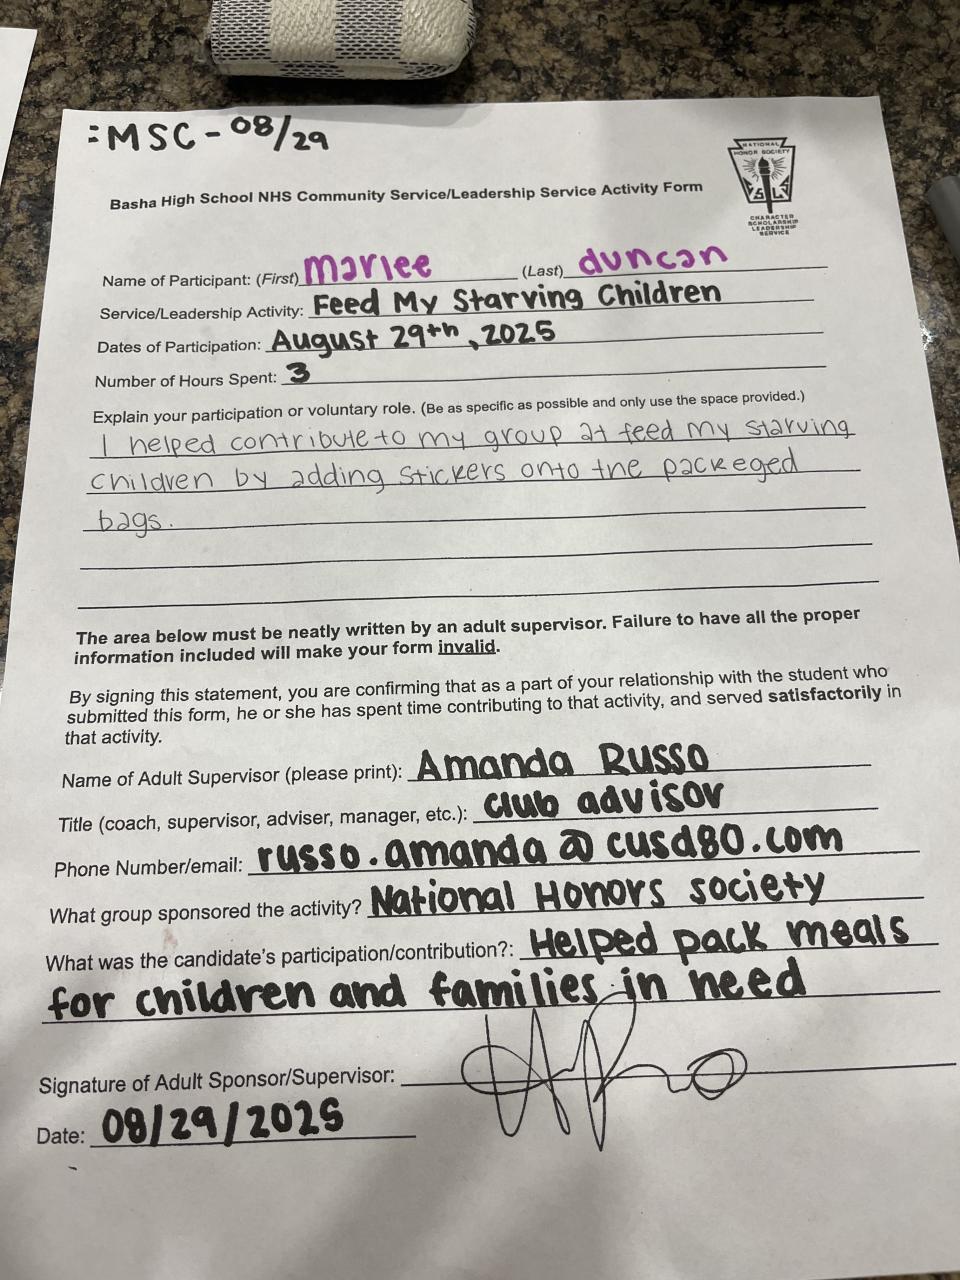 :MSC-08/29
NATIONAL
HONOR SOCIETY
CHARACTER
SCHOLARSHIP
LEADERSHIP
SERVICE
Basha High School NHS Community Service/Leadership Service Activity Form
Name of Participant: (First) marlee (Last) duncan
Service/Leadership Activity: Feed My Starving Children
Dates of Participation: August 29th, 2025
Number of Hours Spent: 3
Explain your participation or voluntary role. (Be as specific as possible and only use the space provided.)
I helped contribute to my group at feed my starving
children by adding stickers onto the packeged
bags.
The area below must be neatly written by an adult supervisor. Failure to have all the proper
information included will make your form invalid.
By signing this statement, you are confirming that as a part of your relationship with the student who
submitted this form, he or she has spent time contributing to that activity, and served satisfactorily in
that activity.
Name of Adult Supervisor (please print): Amanda Russo
Title (coach, supervisor, adviser, manager, etc.): club advisor
Phone Number/email: russo.amanda@cusd80.com
What group sponsored the activity? National Honors society
What was the candidate's participation/contribution?: Helped pack meals
for children and families in need
Signature of Adult Sponsor/Supervisor:
Date: 08/29/2025